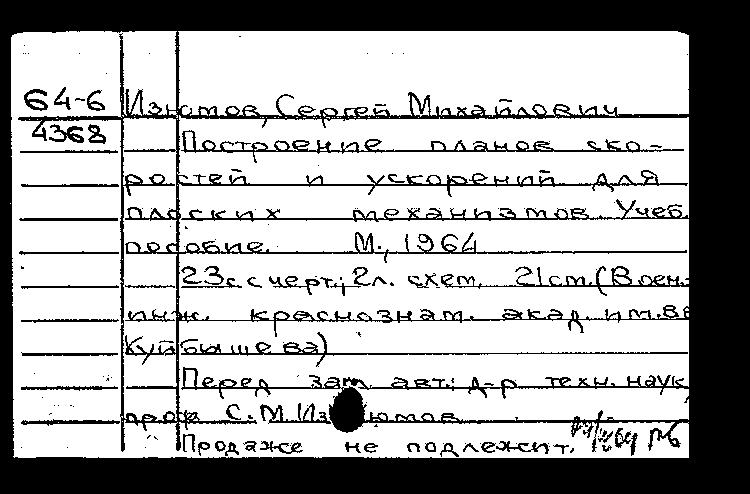 64-6 Изюмов, Сергей Михайлович
4368
Построение планов ско-
ростей и ускорений для
плоских механизмов. Учеб.
пособие. М., 1964
23с. с черт.; 2л. схем. 21см. (Воен.-
инж. краснознам. акад. им. В.В.
Куйбышева)
Перед загл. авт.: д-р техн. наук,
проф. С.М. Изюмов
Продаже не подлежит.